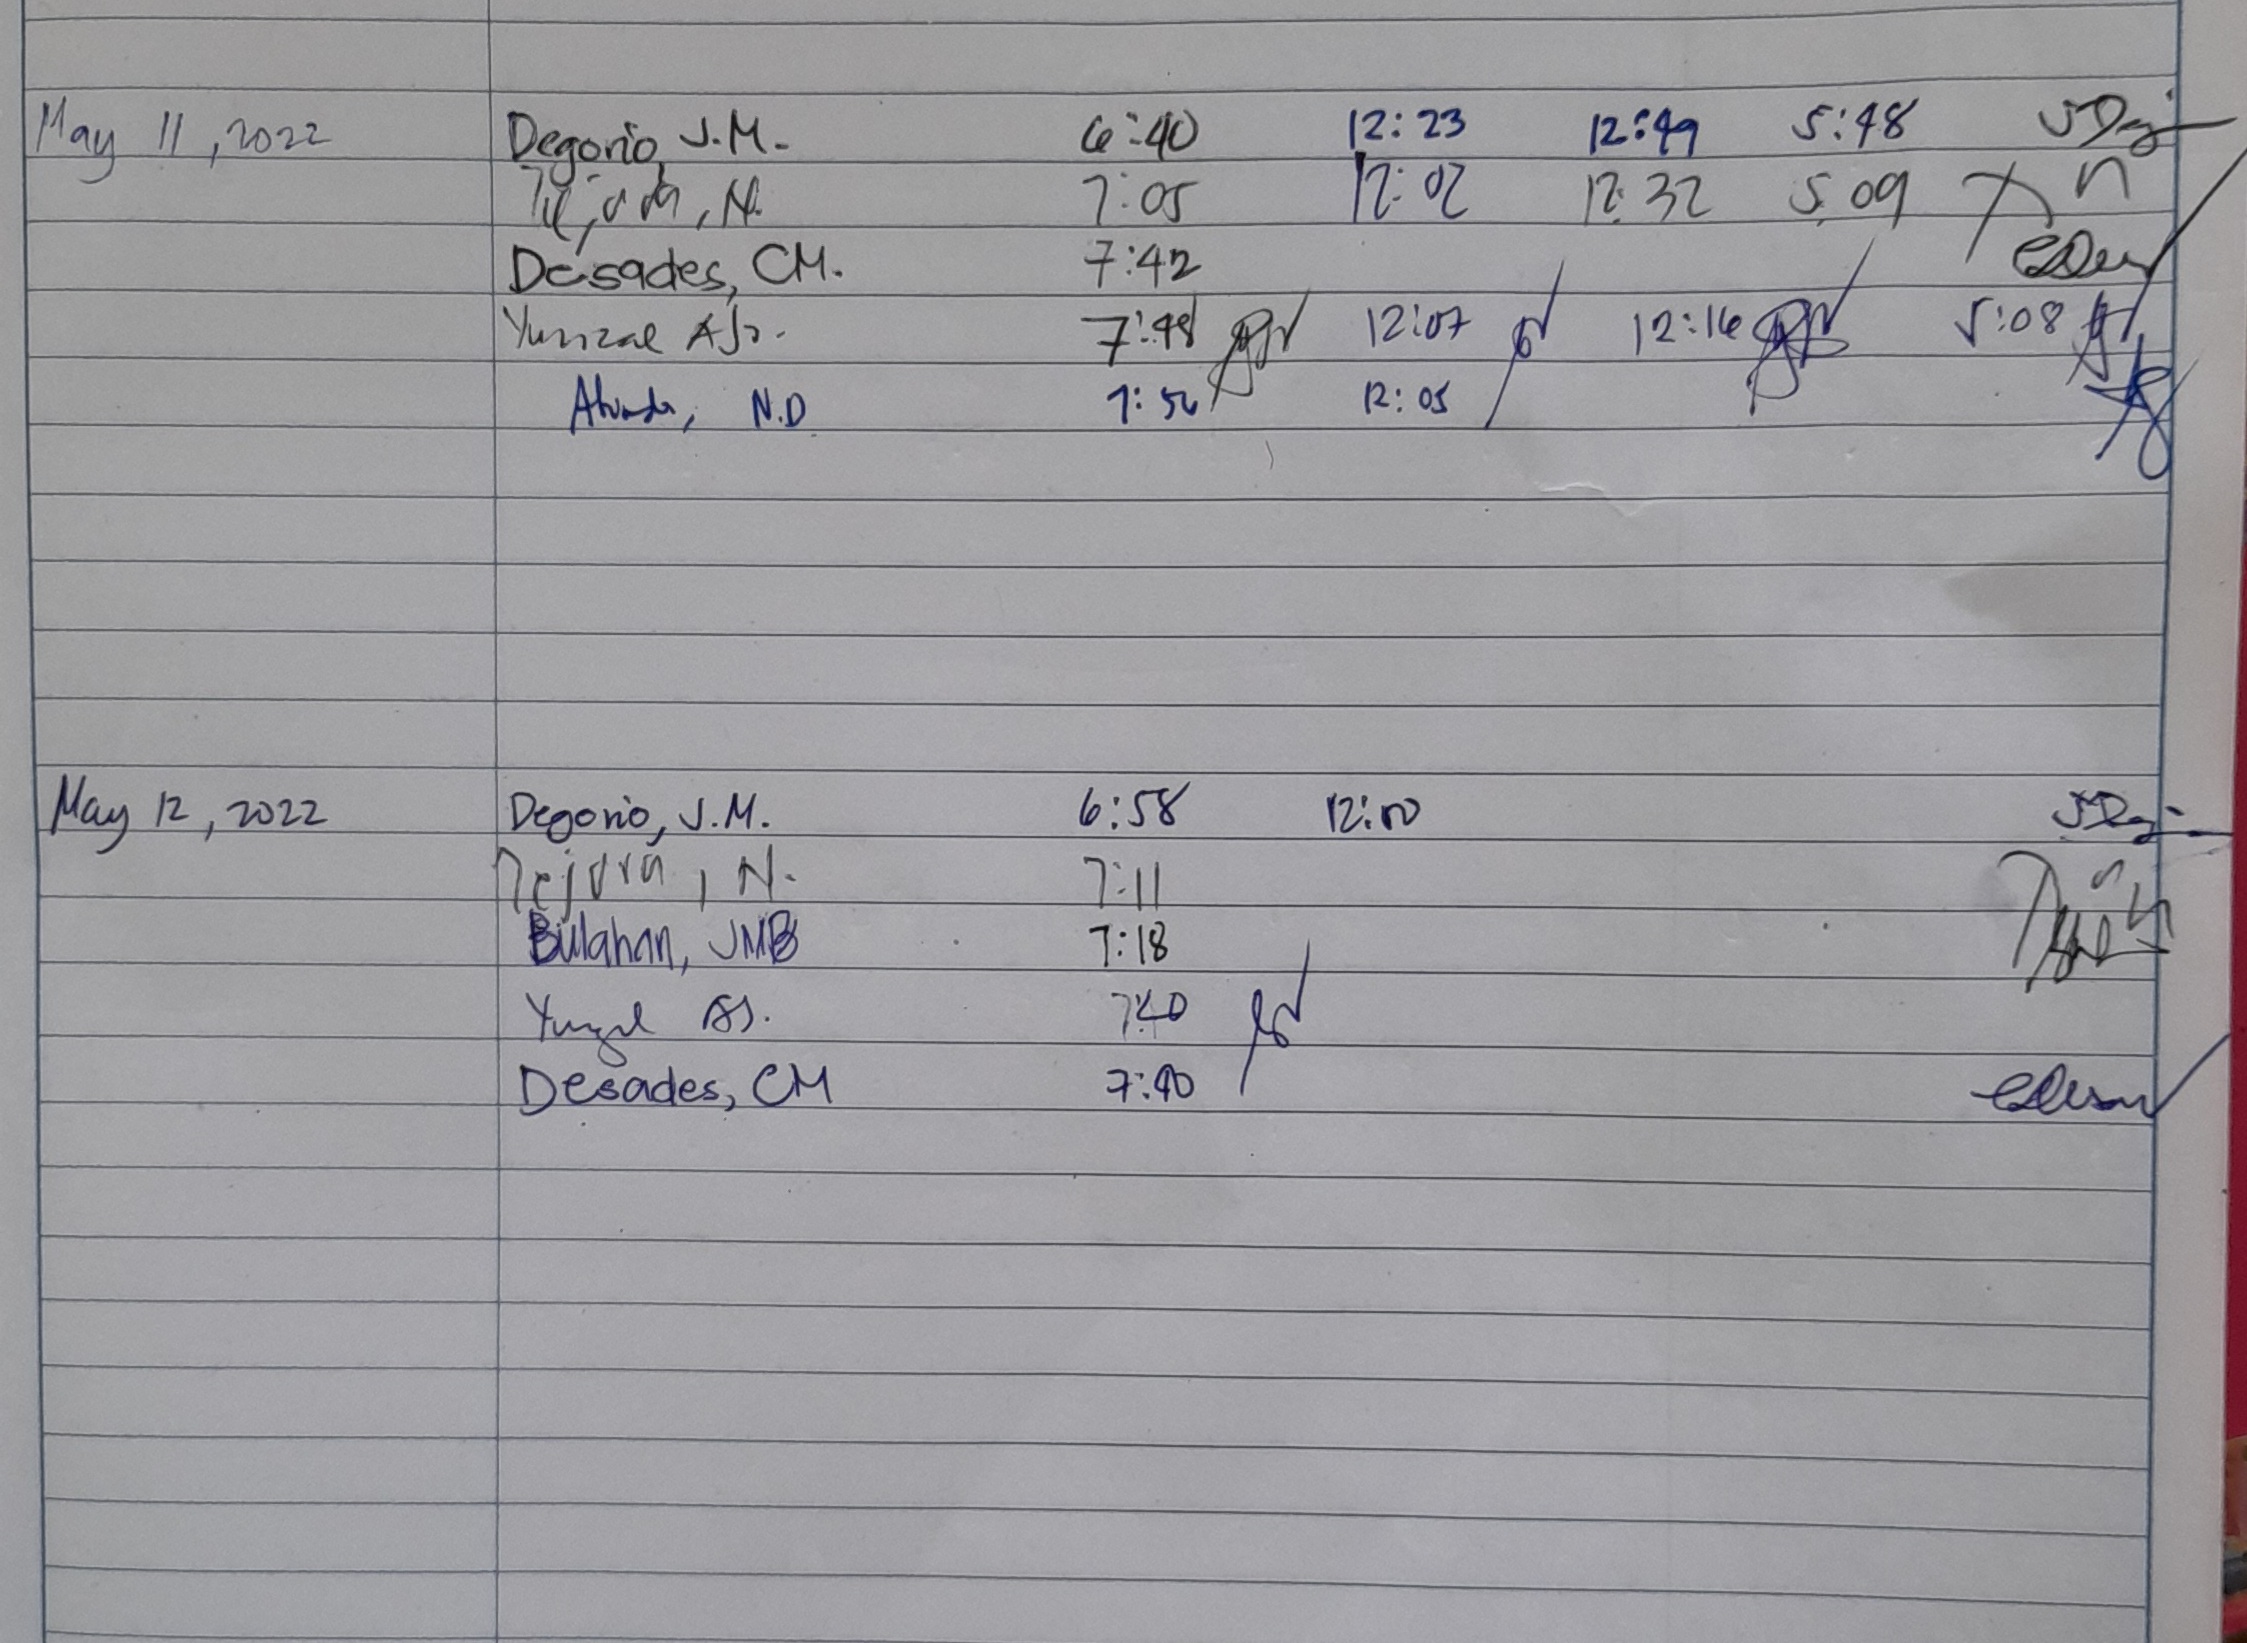 May 11, 2022 Degorio, J.M. 6:40 12:23 12:49 5:48
N. 7:05 12:02 12:32 5:09
Desades, CM. 7:42
7:48 12:07 12:16 5:08
N.D 7:56 12:05
May 12, 2022 Degorio, J.M. 6:58 12:00
Tejora, N. 7:11
Bulahan, JMB 7:18
7:40
Desades, CM 7:40